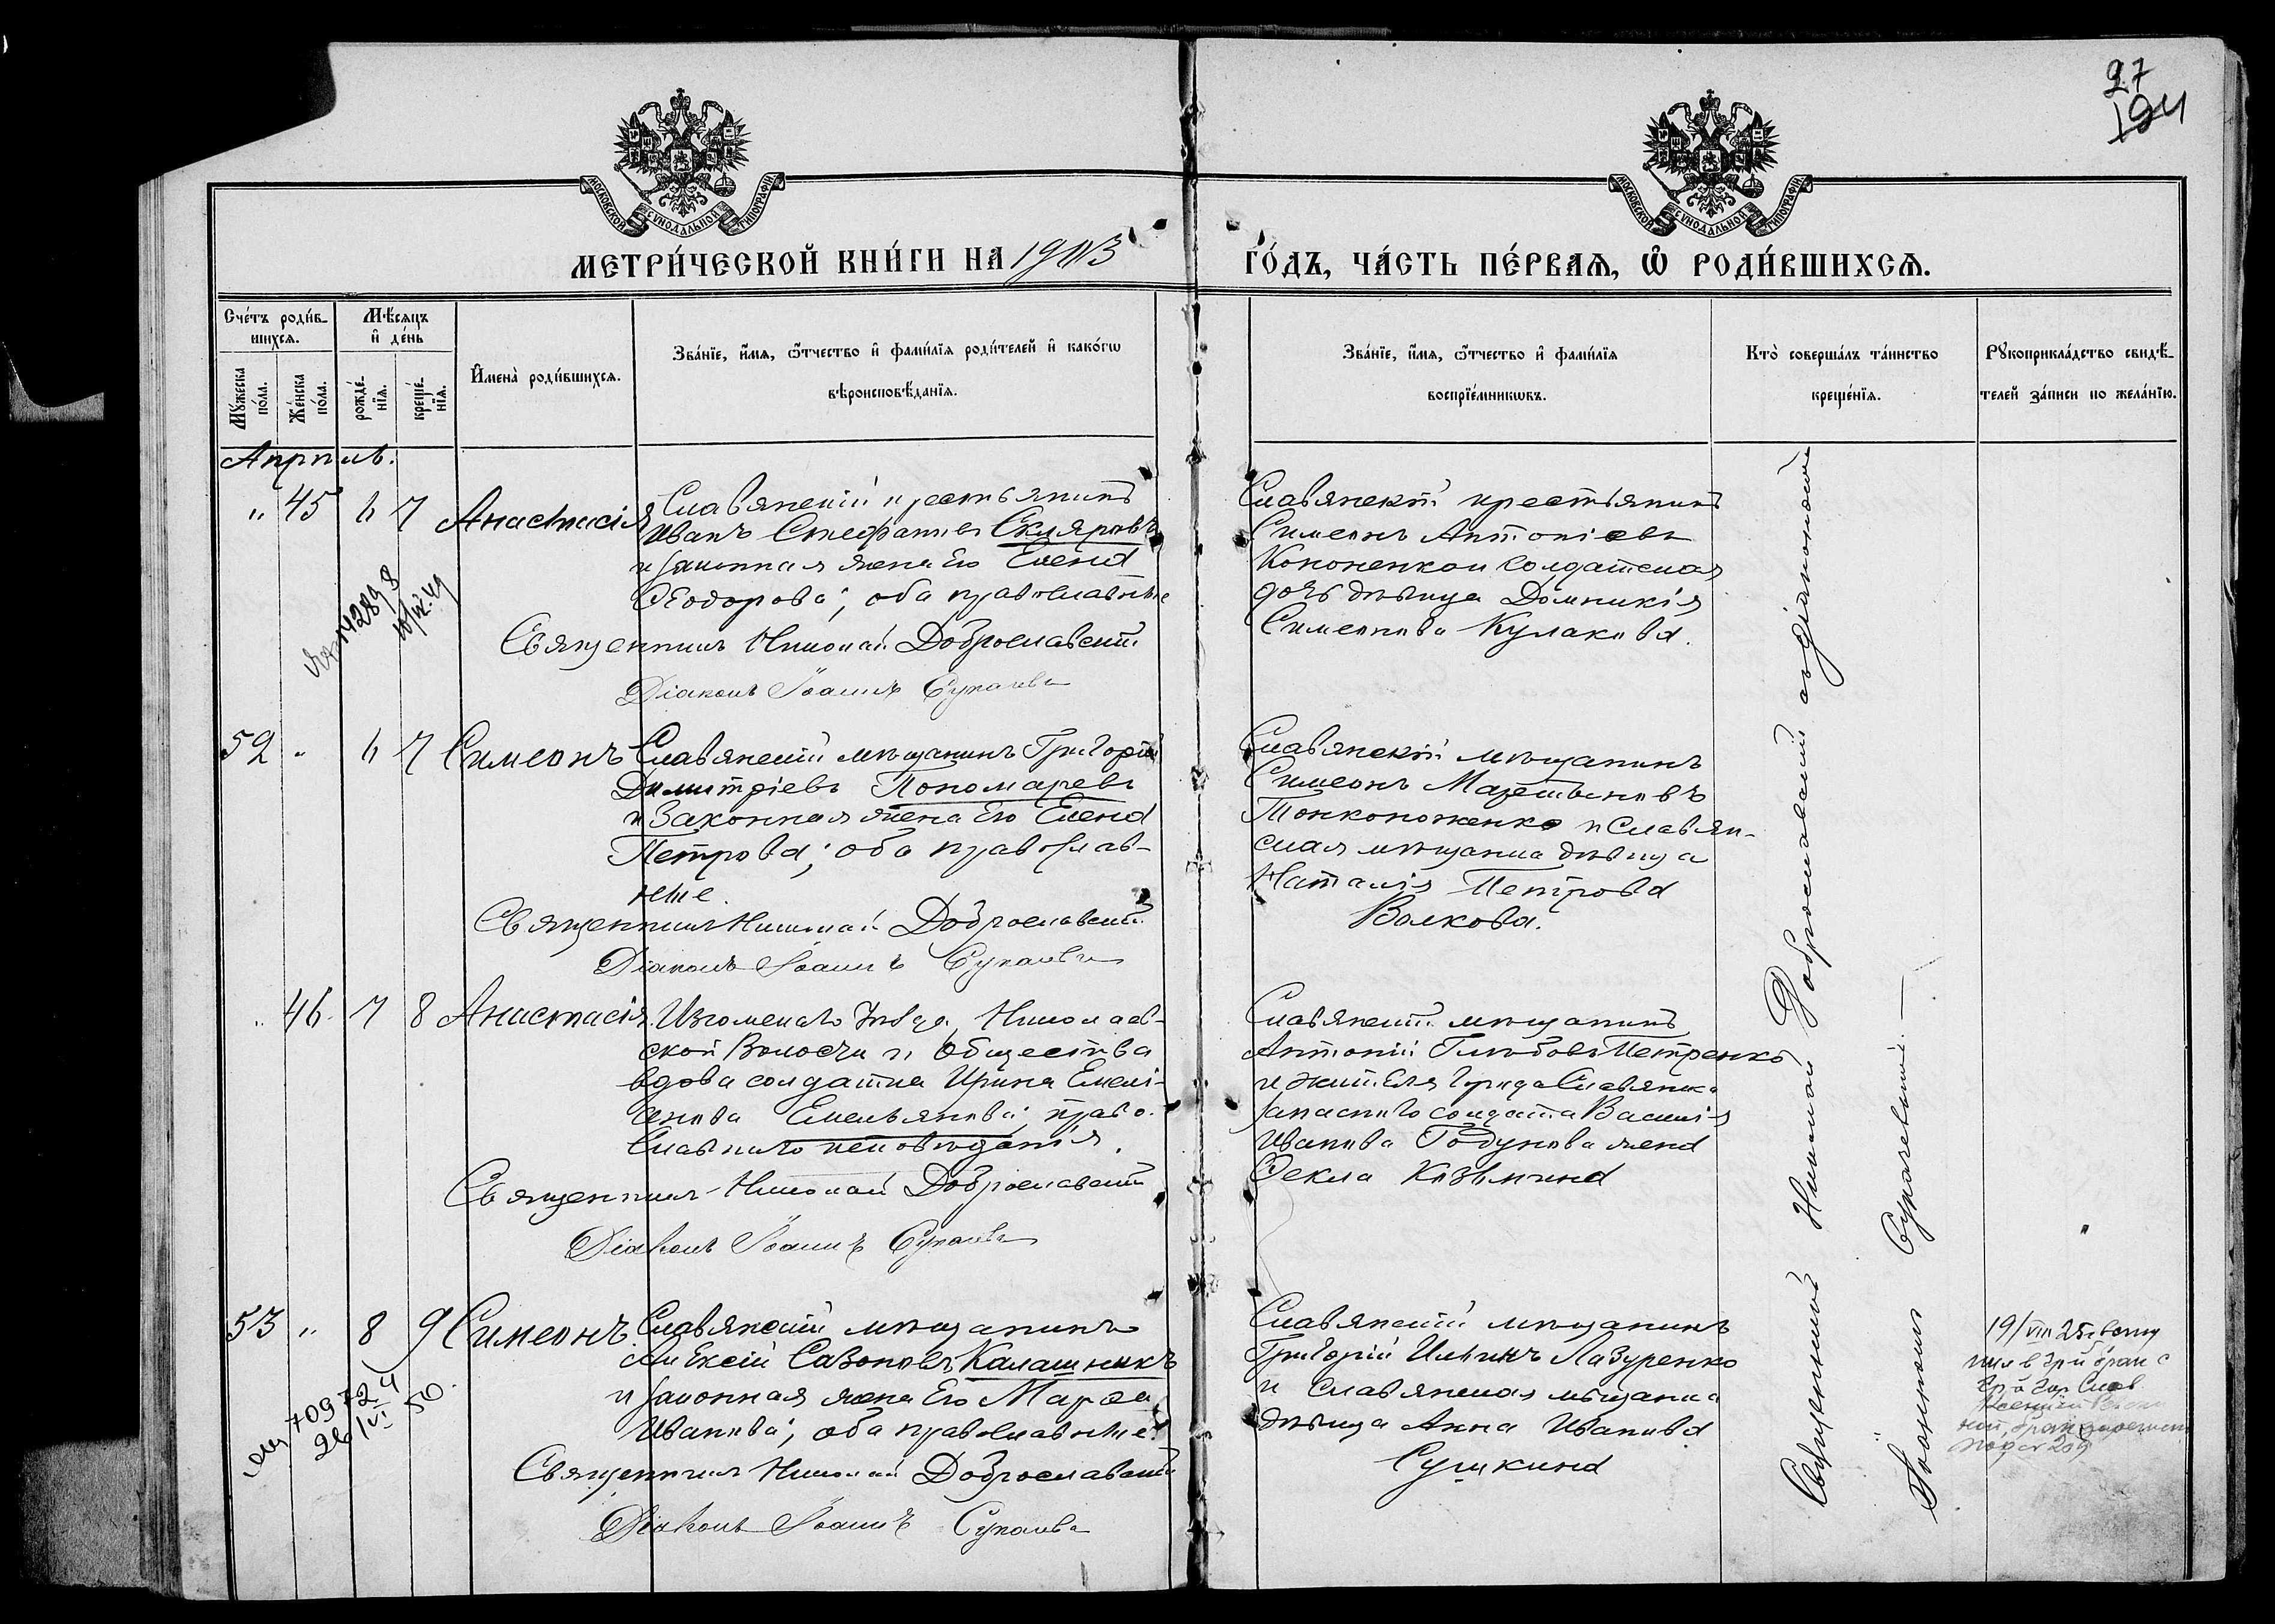 27
194
МОСКОВСКОЙ СѴНОДАЛЬНОЙ ТИПОГРАФІИ
МОСКОВСКОЙ СѴНОДАЛЬНОЙ ТИПОГРАФІИ
МЕТРИ́ЧЕСКОЙ КНИ́ГИ НА 1903
ГО́ДЪ, ЧА́СТЬ ПЕ́РВАѦ, Ѡ҆ РОДИ́ВШИХСѦ.
Сче́тъ роди́в-
шихсѧ.
Мѣ́сѧцъ
и҆ де́нь
Мꙋ́жеска по́ла.
Же́нска по́ла.
рожде́-
нїѧ.
креще́-
нїѧ.
И҆мена̀ роди́вшихсѧ.
Зва́нїе, и҆́мѧ, ѻ҆́тчество и҆ фами́лїѧ роди́телей и҆ како́гѡ
вѣроисповѣ́данїѧ.
Зва́нїе, и҆́мѧ, ѻ҆́тчество и҆ фами́лїѧ
воспрїе́мникѡвъ.
Кто̀ соверша́лъ та́инство
креще́нїѧ.
Рꙋкоприкла́дство свидѣ́-
телей за́писи по жела́нїю.
Апрѣль.
" 45 6 7 Анастасія
Славянскій крестьянинъ
Иванъ Стефановъ Скляровъ
и законная жена его Елена
Ѳеодорова; оба православные
Священникъ Николай Доброславскій
Діаконъ Іоаннъ
Славянскій крестьянинъ
Симеонъ Антоніевъ
Кононенко и солдатская
дочь дѣвица Домникія
Симеонова Кулакова.
14289
52 " 6 7 Симеонъ
Славянскій мѣщанинъ Григорій
Димитріевъ Пономаревъ
и законная жена его Елена
Петрова; оба православ-
ные.
Священникъ Николай Доброславскій
Діаконъ Іоаннъ
Славянскій мѣщанинъ
Симеонъ
Тонконоженко и Славян-
ская мѣщанка дѣвица
Наталія Петрова
Волкова.
" 46. 7 8 Анастасія
Изюмскаго уѣзда, Николаев-
ской волости и общества
вдова солдатка Ирина Емелі-
анова Емельянова; право-
славнаго исповѣданія.
Священникъ Николай Доброславскій
Діаконъ Іоаннъ
Славянскій мѣщанинъ
Антоній Глѣбовъ Петренко
и жителя города Славянска
запаснаго солдата Василія
Иванова Годунова жена
Ѳекла Козьмина
53 " 8 9 Симеонъ
Славянскій мѣщанинъ
Алексій Сазоновъ Калашникъ
и законная жена его Марѳа
Иванова; оба православные.
Священникъ Николай Доброславскій
Діаконъ Іоаннъ
Славянскій мѣщанинъ
Григорій Ильинъ Лазуренко
и Славянская мѣщанка
дѣвица Анна Иванова
Сушкина
709724
26/VI 50.
Священникъ Николай Доброславскій съ діакономъ
Іоанномъ
19/VIII 25